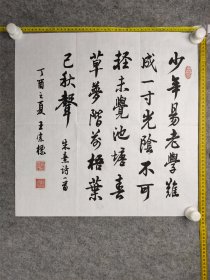 少年易老學難
成一寸光陰不可
輕未覺池塘春
草夢階前梧葉
已秋聲 朱熹詩一首
丁酉之夏 王